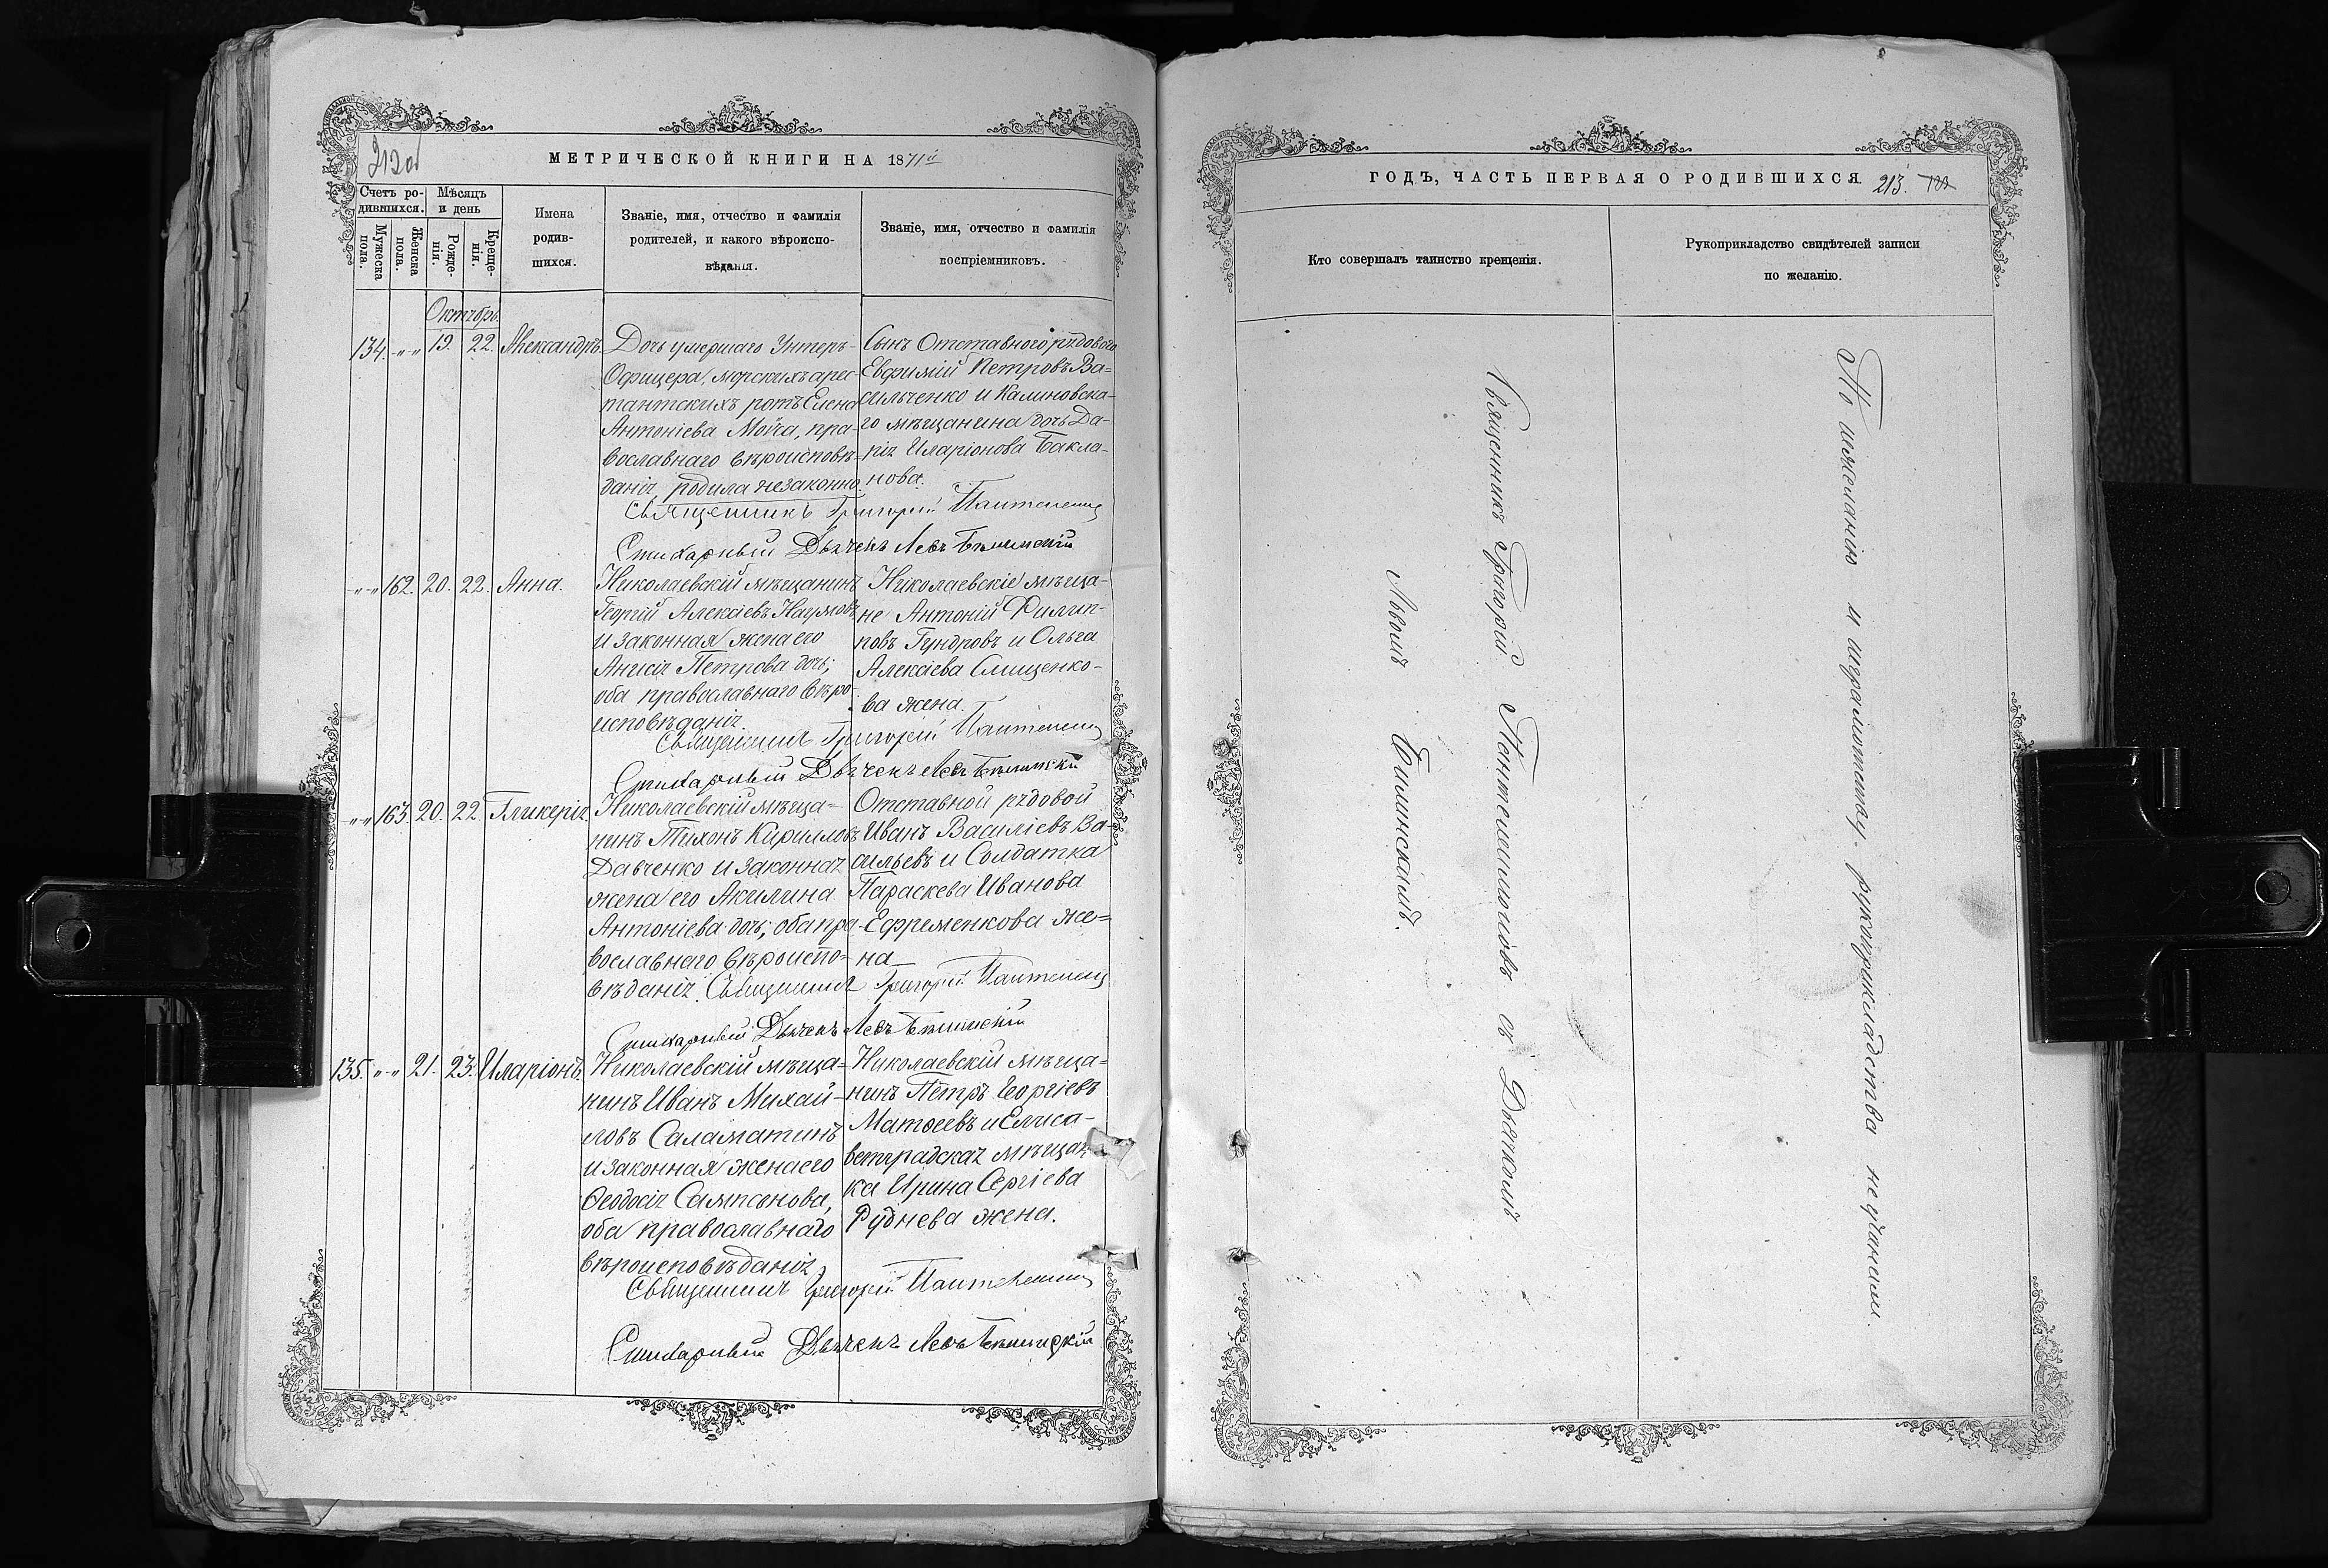 212об
МЕТРИЧЕСКОЙ КНИГИ НА 1871й
Счетъ ро-
дившихся.
Мѣсяцъ
и день
Мужеска пола.
Женска пола.
Рожде-
нія.
Креще-
нія.
Имена
родив-
шихся.
Званіе, имя, отчество и фамилія
родителей, и какого вѣроиспо-
вѣданія.
Званіе, имя, отчество и фамилія
воспріемниковъ.
Октябрь.
134. „ „ 19. 22. Александръ.
Дочь умершаго Унтеръ-
Офицера, морскихъ арес-
тантскихъ ротъ Елена
Антоніева Мойса, пра-
вославнаго вѣроисповѣ-
данія, родила незаконно.
Сынъ Отставного рядового
Евфимій Петровъ Ва=
сильченко и Калиновска-
го мѣщанина дочь Да-
рія Иларіонова Бакла-
нова.
Священникъ Григорій
Стихарный Дьячекъ Левъ Бѣлинскій
„ „ 162. 20. 22. Анна.
Николаевскій мѣщанинъ
Георгій Алексіевъ Наумовъ
и законная жена его
Анисія Петрова дочь;
оба православнаго вѣро-
исповѣданія.
Николаевскіе мѣща-
не Антоній Филип-
повъ Гундоровъ и Ольга
Алексіева Слищенко-
ва жена.
Священникъ Григорій
Стихарный Дьячекъ Левъ Бѣлинскій
„ „ 163. 20. 22. Гликерія.
Николаевскій мѣща=
нинъ Тихонъ Кирилловъ
Давченко и законная
жена его Акилина
Антоніева дочь; оба пра-
вославнаго вѣроиспо-
вѣданія.
Отставной рядовой
Иванъ Василіевъ Ва-
сильевъ и Солдатка
Параскева Иванова
Ефременкова же=
на
Священникъ Григорій
Стихарный Дьячекъ Левъ Бѣлинскій
135. „ „ 21. 23. Иларіонъ.
Николаевскій мѣща=
нинъ Иванъ Михай-
ловъ Саламатинъ
и законная жена его
Ѳеодосія Сампсонова,
оба православнаго
вѣроисповѣданія
Николаевскій мѣща=
нинъ Петръ Георгіевъ
Матѳеевъ и Елиса-
ветградская мѣщан-
ка Ирина Сергіева
Руднева жена.
Священникъ Григорій
Стихарный Дьячекъ Левъ Бѣлинскій
ГОДЪ, ЧАСТЬ ПЕРВАЯ О РОДИВШИХСЯ. 213.
Кто совершалъ таинство крещенія.
Рукоприкладство свидѣтелей записи
по желанію.
Священникъ Григорій Пантелимоновъ съ Дьячкомъ
Львомъ Билинскимъ.
По нежеланію и неграмотству рукоприкладства не учинили.